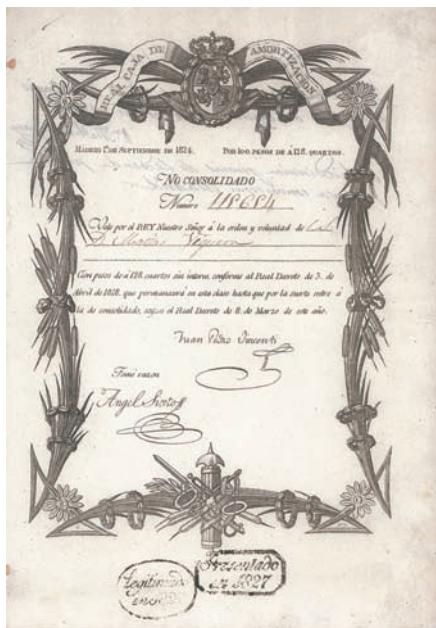 REAL CAJA DE AMORTIZACION
MADRID 1º DE SEPTIEMBRE DE 1824. POR 100 PESOS DE Á 128. QUARTOS.
NO CONSOLIDADO
Numero 118684
Vale por el REY Nuestro Señor á la orden y voluntad de
D. Martin
Cien pesos de á 128 cuartos sin interes, conforme al Real Decreto de 3. de
Abril de 1818, que permanecerá en esta clase hasta que por la suerte entre á
la de consolidado, segun el Real Decreto de 8. de Marzo de este año.
Juan Pedro Vincenti
Tomé razon
Angel
Legitimado
en
Presentado
en 1827